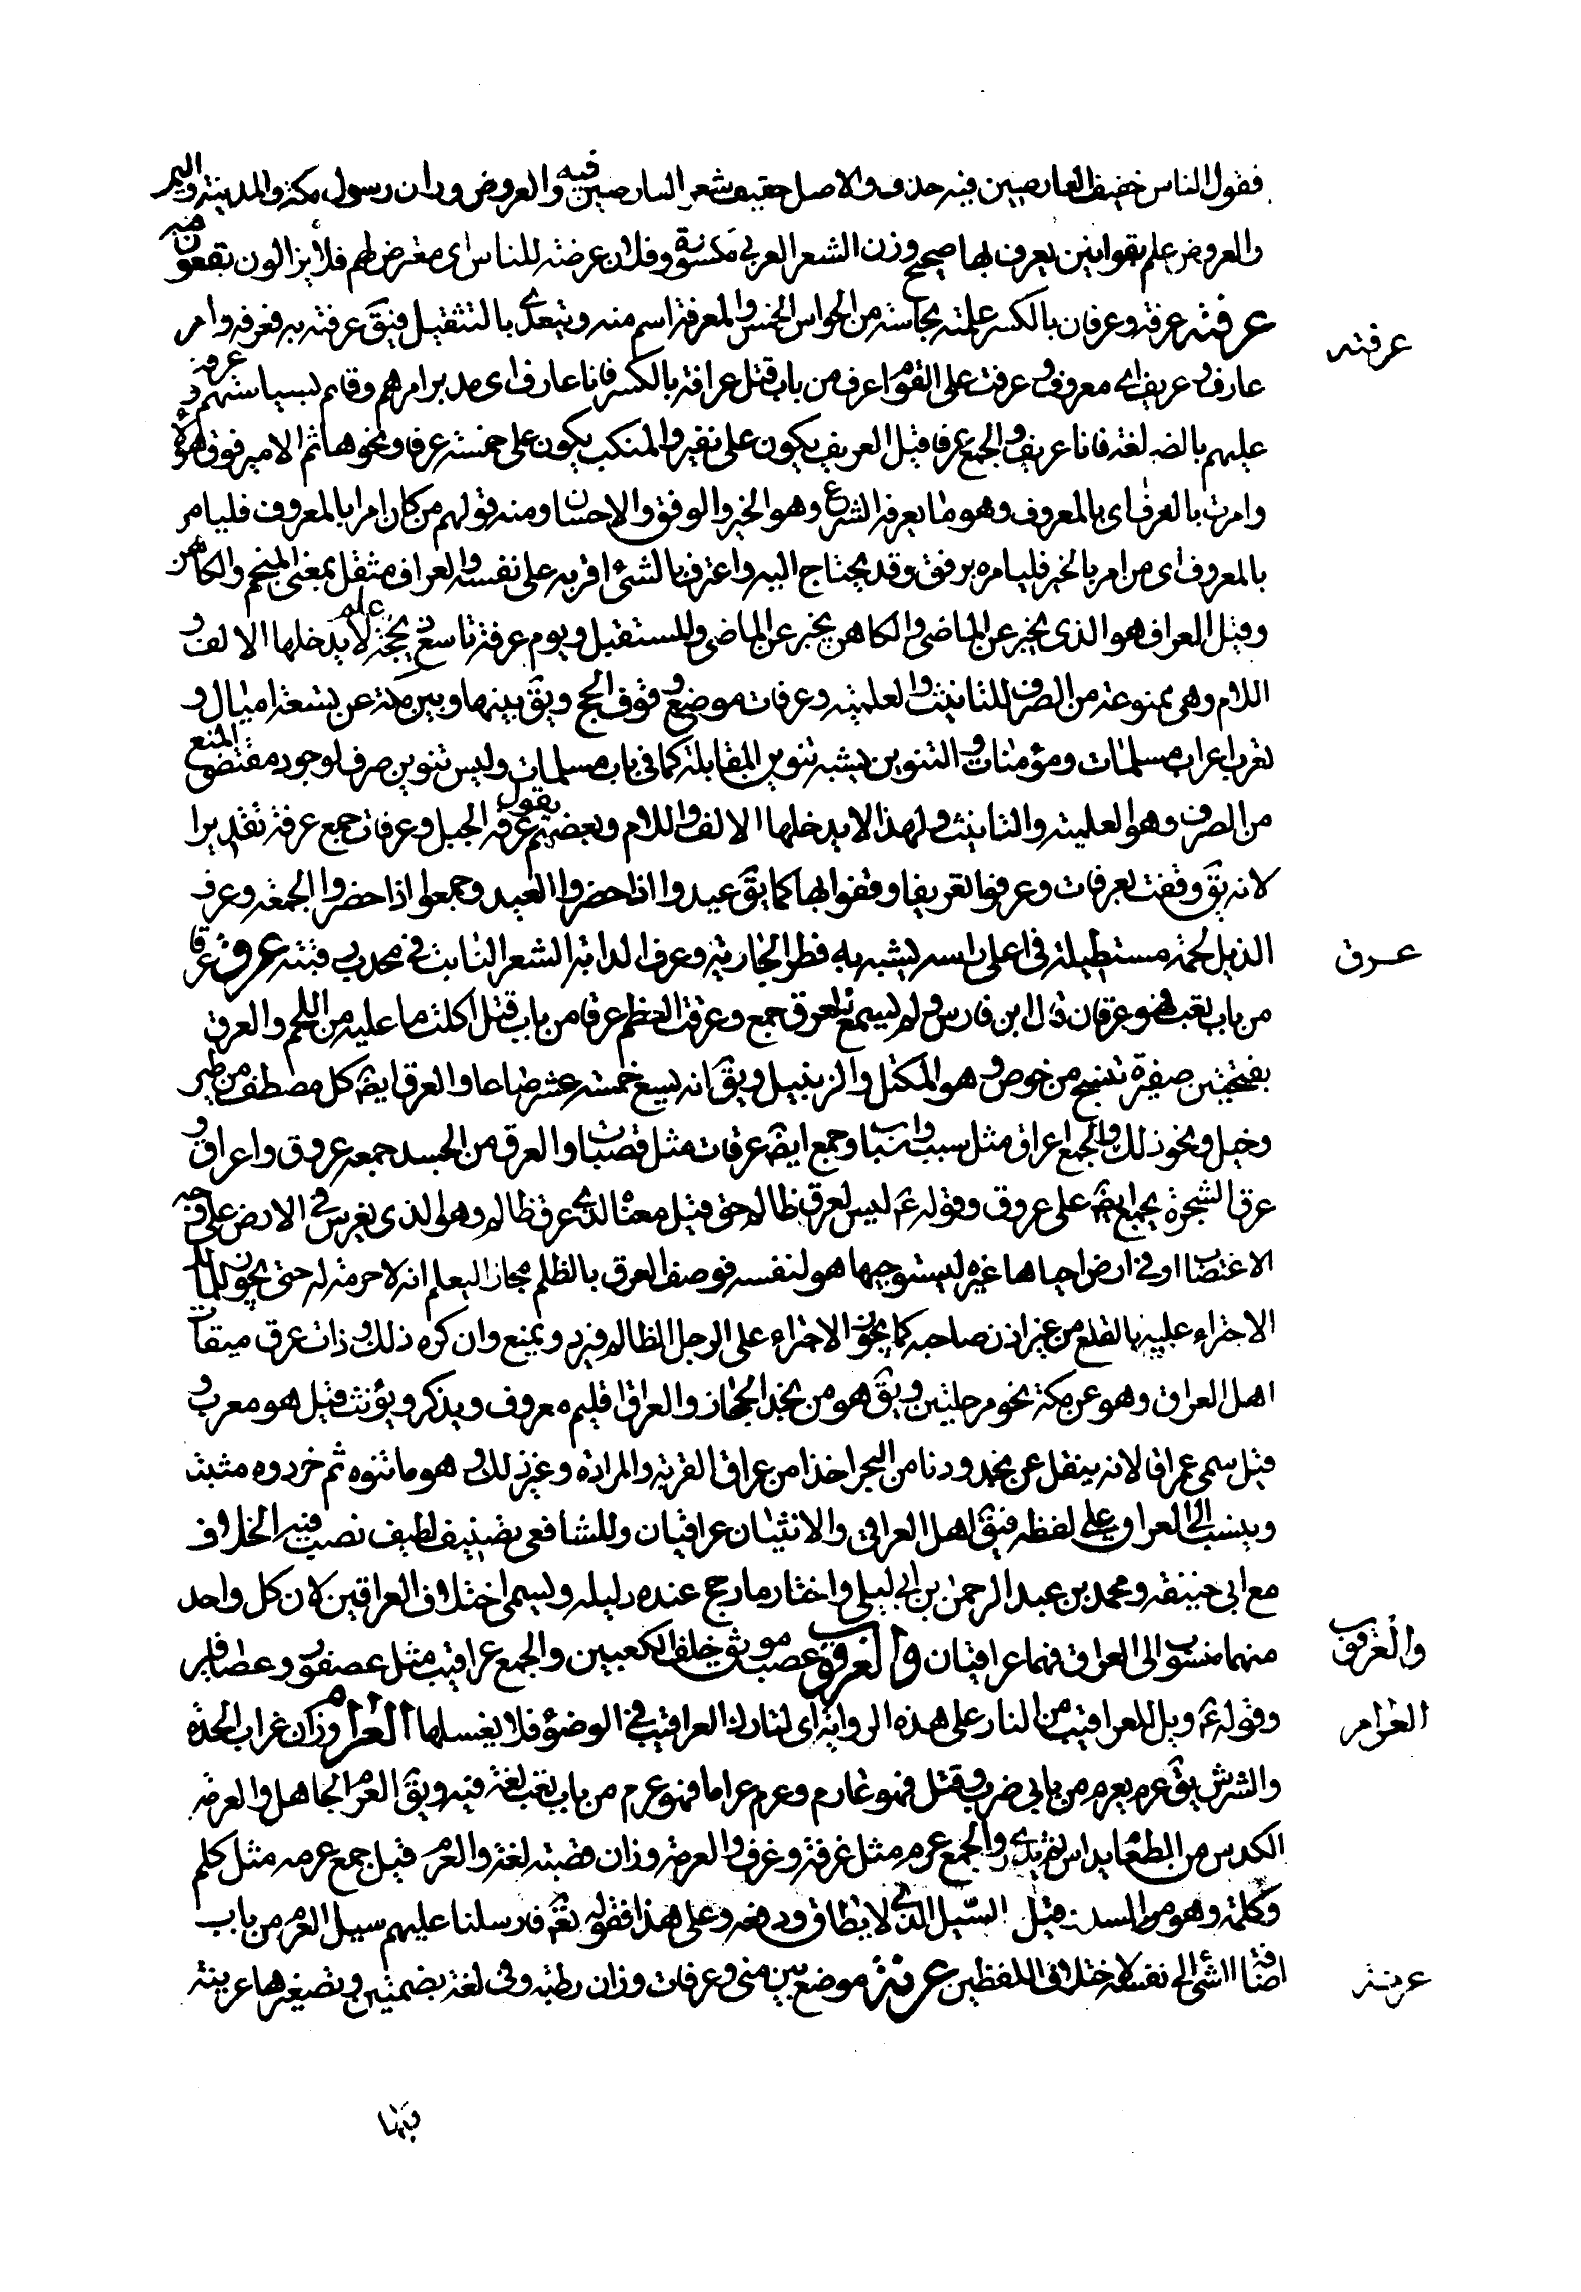 فقول الناس خفيف العارضين فيه حذف والاصل خفيف شعر العارضين فيه والعروض وزان رسول مكة والمدينة واليمن
والعروض علم بقوانين يعرف بها صحيح وزن الشعر العربي مكسوره وفلان عرضة للناس اى معترض لهم فلا يزالون يقعون فيه
عرفته
عرفته عرفة وعرفان بالكسر علمته بحاسة من الحواس الخمس والمعرفة اسم منه ويتعدى بالتثقيل فيق عرفته به فعرفه وامر
عارف وعريف اى معروف وعرفت على القوم اعرف من باب قتل عرافة بالكسر فانا عارف اى مدبر امرهم وقائم بسياستهم وعرفت
عليهم بالضم لغة فانا عريف والجمع عرفا قيل العريف يكون على نفير والمنكب يكون على خمسة عرفا ونحوها ثم الامير فوق هؤلاء
وامرت بالعرف اى بالمعروف وهو ما يعرفه الشرع وهو الخير والرفق والاحسان ومنه قولهم من كان امرا بالمعروف فليامر
بالمعروف اى من امر بالخير فليامره برفق وقد يحتاج اليه واعترف بالشئ اقر به على نفسه والعراف مثقل بمعنى المنجم والكاهن
وقيل العراف هو الذى يخبر عن الماضى والكاهن يخبر عن الماضى والمستقبل ويوم عرفة تاسع ذى الحجة علم لا يدخلها الالف و
اللام وهى ممنوعة من الصرف للتانيث والعلمية وعرفات موضع وقوف الحج ويق بينها وبين مكة عن تسعة اميال و
تعرب اعراب مسلمات ومؤمنات والتنوين يشبه تنوين المقابلة كما فى باب مسلمات وليس تنوين صرف لوجود مقتضى المنع
من الصرف وهو العلمية والتانيث ولهذا لا يدخلها الالف واللام وبعضهم يقول عرفة الجبل وعرفات جمع عرفة تقديرا
لانه يق وقفت بعرفات وعرفوا تعريفا وقفوا بها كما يق عيدوا اذا حضروا العيد وجمعوا اذا حضروا الجمعة وعرف
عرق
الديك لحمة مستطيلة فى اعلى راسه يشبه به بظر الجارية وعرف الدابة الشعر النابت فى محدب رقبته عرق عرقا
من باب تعب فهو عرقان قال ابن فارس ولم يسمع للعرق جمع وعرقت العظم عرقا من باب قتل اكلت ما عليه من اللحم والعرق
بفتحتين ضفيرة تنسج من خوص وهو المكتل والزنبيل ويق انه يسع خمسة عشر صاعا والعرق ايضه كل مصطف من طير
وخيل ونحو ذلك والجمع اعراق مثل سبب واسباب وجمع ايضه عرقات مثل قصبات والعرق من الجسد جمعه عروق واعراق و
عرق الشجرة يجمع ايضه على عروق وقوله عم ليس لعرق ظالم حق قيل معناه لذى عرق ظالم وهو الذى يغرس فى الارض على وجه
الاغتصاب او فى ارض احياها غيره ليستوجبها هو لنفسه فوصف العرق بالظلم مجازا ليعلم انه لا حرمة له حتى يجوز للمالك
الاجتراء عليه بالقلع من غير اذن صاحبه كما يجوز الاجتراء على الرجل الظالم فيرد ويمنع وان كره ذلك وذات عرق ميقات
اهل العراق وهو عن مكة نحو مرحلتين ويق هو من نجد الحجاز والعراق اقليم معروف ويذكر ويؤنث قيل هو معرب و
قيل سمى عراقا لانه سفل عن نجد ودنا من البحر اخذا من عراق القربة والمزادة وغير ذلك وهو ما ثنوه ثم خرزوه مثنيا
وينسب الى العراق على لفظه فيق اهل العراقى والانثيان عراقيان وللشافعى تصنيف لطيف نصب فيه الخلاف
مع ابى حنيفة ومحمد بن عبد الرحمن بن ابى ليلى واختار ما رجح عنده دليله ويسمى اختلاف العراقين لان كل واحد
والعرقوب
منهما منسوب الى العراق فهما عراقيان والعرقوب عصب موثق خلف الكعبين والجمع عراقيب مثل عصفور وعصافير
العرام
وقوله عم ويل للعراقيب من النار على هذه الرواية اى لتارك العراقيب فى الوضوء فلا يغسلها العرام وزان غراب الحدة
والشرس يق عرم يعرم من بابى ضرب وقتل فهو عارم وعرم عراما فهو عرم من باب تعب لغة فيه ويق العرم الجاهل والعرمة
الكدس من الطعام يداس ثم يذرى والجمع عرم مثل غرفة وغرف والعرمة وزان قصبة لغة والعرم قيل جمع عرمه مثل كلم
وكلمة وهو السد وقيل السيل الذى لا يطاق ودفعه وعلى هذا فقوله تعه فارسلنا عليهم سيل العرم من باب
عرينة
اضافة الشئ الى نفسه لاختلاف اللفظين عرنة موضع بين منى وعرفات وزان رطبة وفى لغة بضمتين وتصغيرها عرينة
وبها